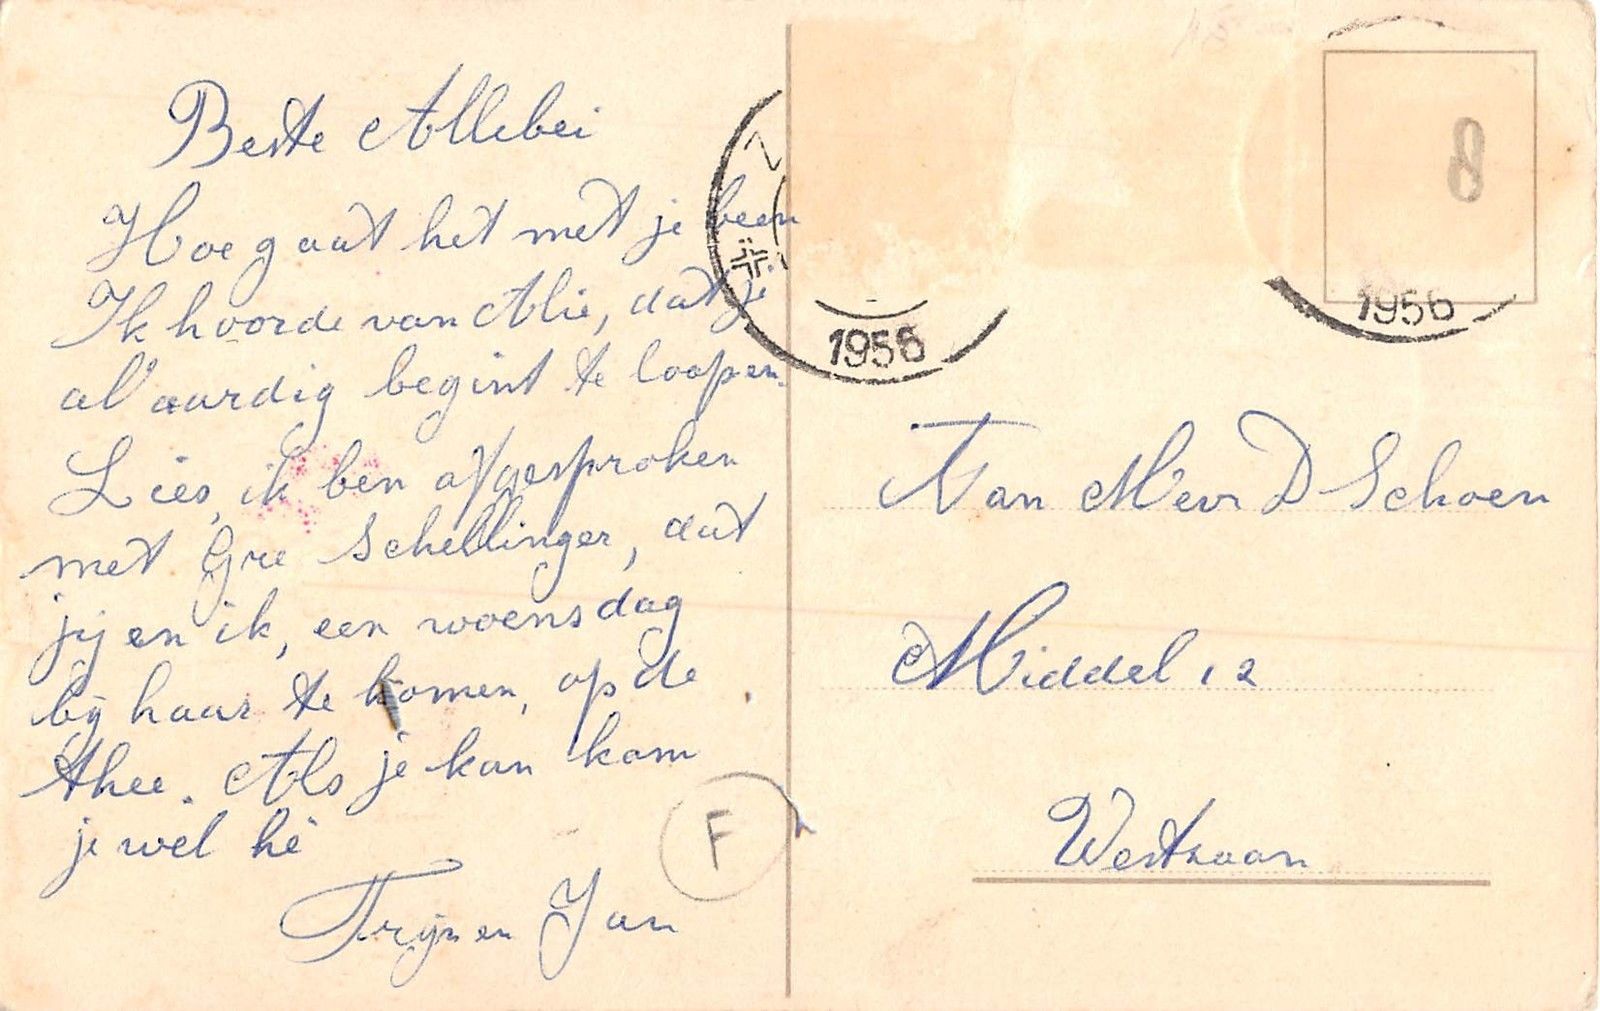 Beste Allebei
Hoe gaat het met je been
Ik hoorde van Alie, dat je
al aardig begint te loopen.
Lies, ik ben afgesproken
met Gre Schellinger, dat
jij en ik, een woensdag
bij haar te komen, op de
thee. Als je kan kom
je wel hè
Trijn en Jan
F
1956
8
1956
Aan Mevr D Schoen
Middel 12
Westzaan